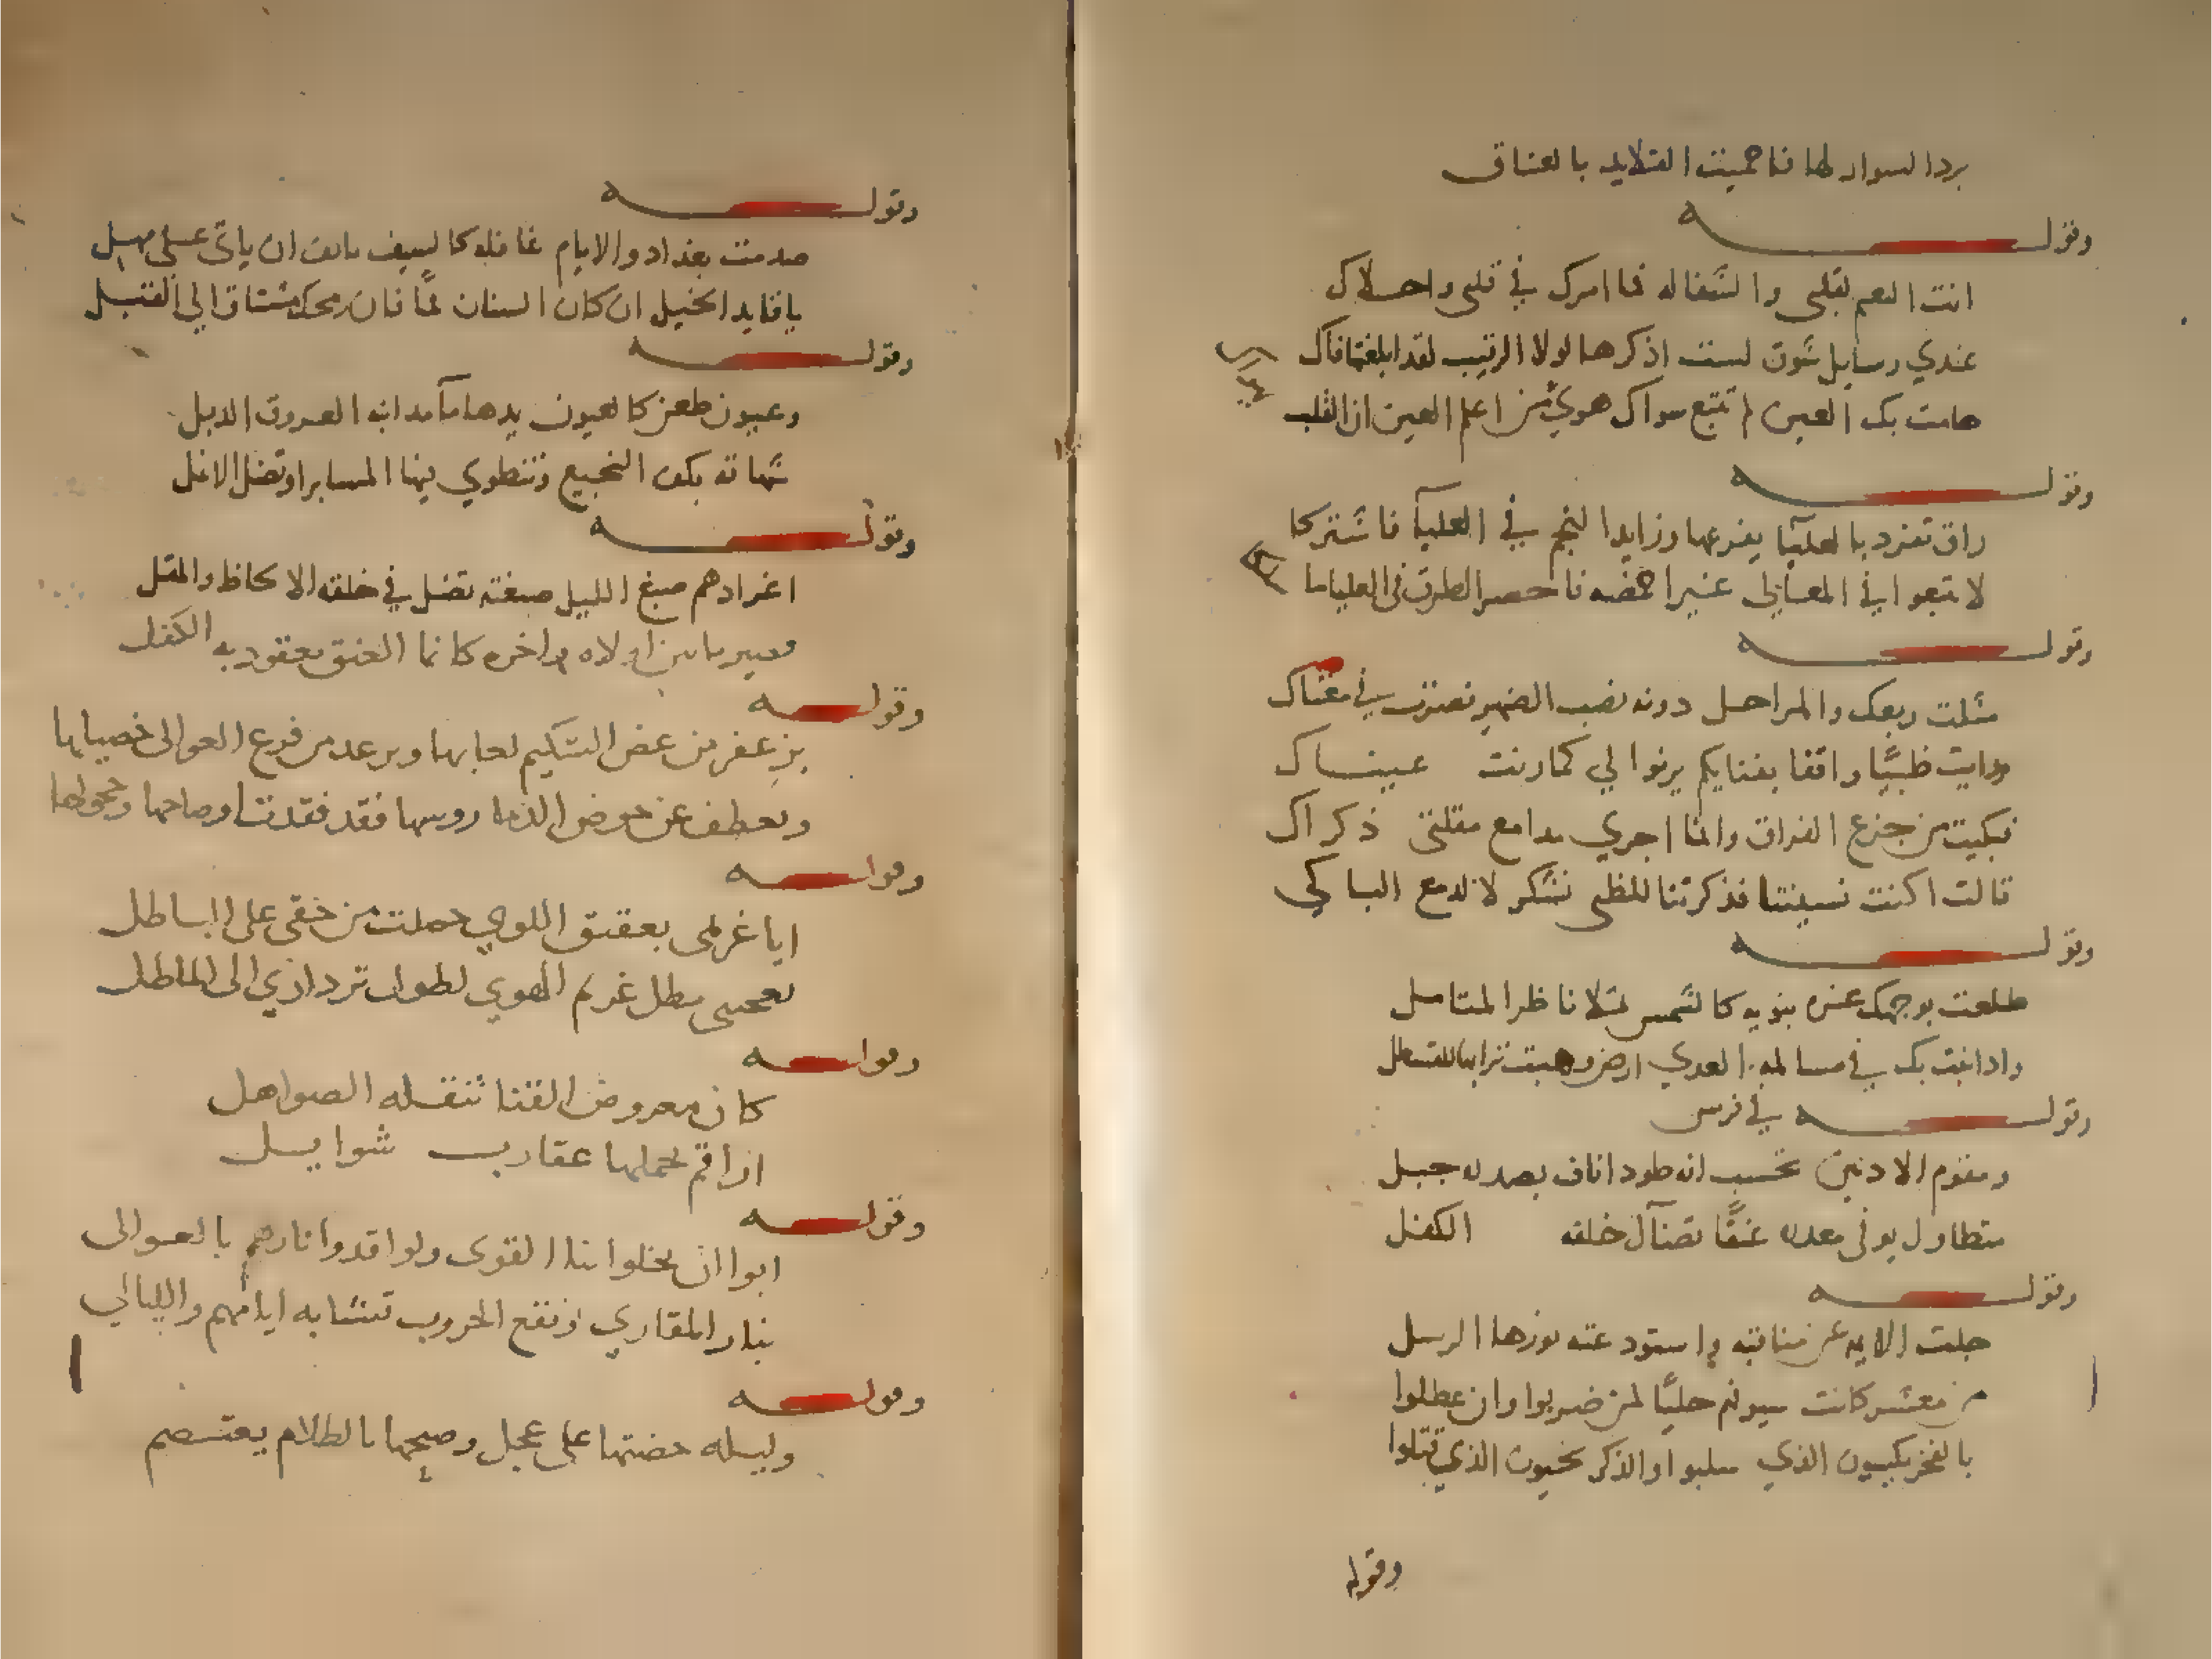 برد السوار لها فاحميت القلايد بالعناق
وقوله
انت النعيم لقلبي والشفا له فما امرك في قلبي واحلاك
عندي رسايل شوق لست اذكرها لولا الرقيب لقد ابلغتها فاك
هامت بك العين لم تتبع سواك هوي من اعلم العين ان القلب يهواك
وقوله
راق تفرد بالعليا يفرعها وزايد النجم في العليا فاشتركا
لا تبعوا في المعالي غير اخمصه فاحصر الطرق في العليا ما سلكا
وقوله
مثلت ربعك والمراحل دونه نصب الضمير فصرت في مغناك
ورايت ظبيًا واقفا بفنايكم يرنوا لي كما رنت عيناك
فبكيت من جزع الفراق وانما اجري مدامع مقلتي ذكراك
قالت اكنت نسيتنا فذكرتنا للظبي نشكر لا لدمع الباكي
وقوله
طلعت بوجهك غره بنويه كالشمس تملا ناظر المتامل
واذا نبت بك في مسالمه العدي ارض وهبت ترابها للقسطل
وقوله في فرس
ومقوم الاذنين تحسب انه طود اناف بصدره جبل
متطاول يوفي معدره عنقًا تضآل خلفه الكفل
وقوله
جلت الايه عن مناقبه واستودعته نورها الرسل
من معشر كانت سيوفهم حليًا لمن ضربوا وان عطلوا
بالفخر يكسون الذي سلبوا والذكر يحيون الذي قتلوا
وقوله
وقوله
صدمت بغداد والايام غافله كالسيف يانف ان ياتي على مهل
يا قايد الخيل ان كان السنان فمًا فان رمحك مشتاق الي القبل
وقوله
وعيون طعن كالعيون يدها مآ مدانبه العروق الذبل
شهاقه بدم النجيع وتنطوي فيها المسابر او تضل الانمل
وقوله
اغر ادهم صبغ الليل صبغته تضل في خلقه الالحاظ والمقل
قصير ما بين اولاه واخره كانما العنق معقود به الكفل
وقوله
يزعفر من عض الشكيم لعابها ويرعد من قرع العوالي خصيلها
وتعطف عن حوض الدما روسها فقد فقدت اوضاحها وحجولها
وقوله
ايا غرمي بعقيق اللوي حصلت من حقي على الباطل
يعجبني مطل غريم الهوي لطول تردادي الى الماطل
وقوله
كان معروض القنا تنقله الصواهل
اراقم تحملها عقارب شوايل
وقوله
ابوا ان يخلوا بنا القوى ولو اقدوا نارهم بالعوالى
بنار المقاري ونقع الحروب تتشابه ايامهم والليالي
وقوله
وليله خضتها على عجل وصبحها بالظلام يعتصم